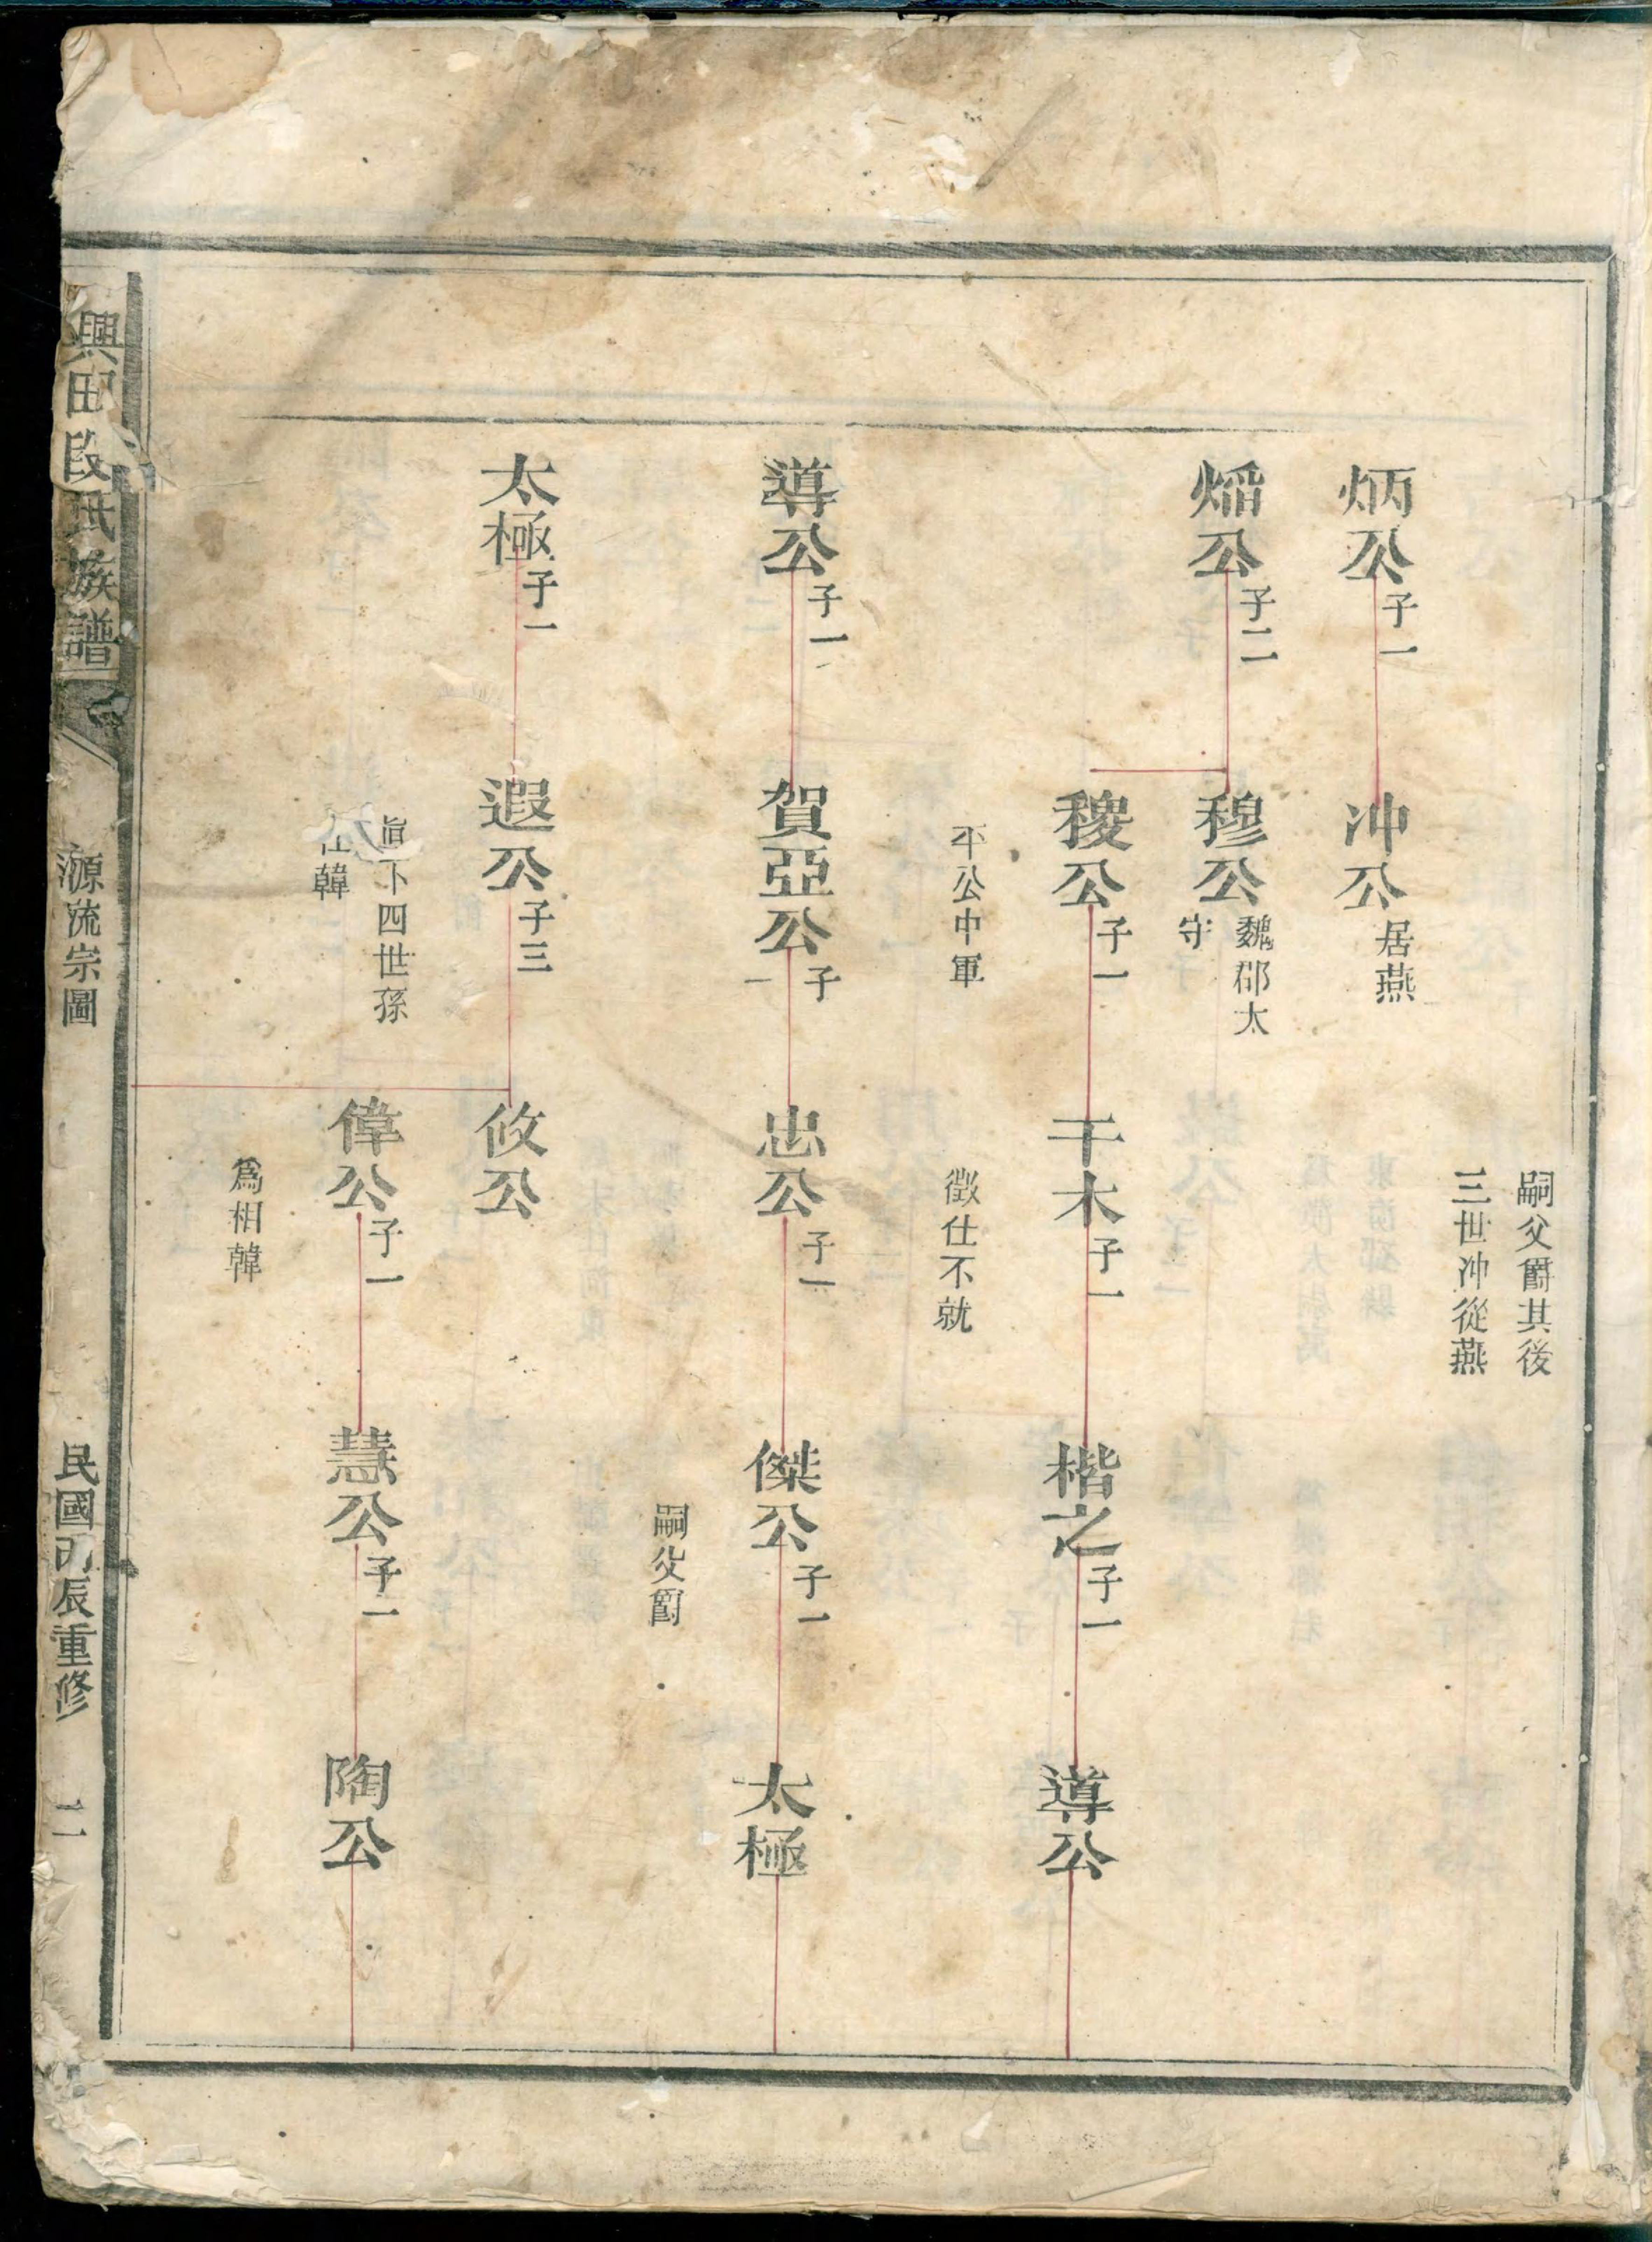 嗣父爵其後
三世冲從燕
炳公
子一
冲公
居燕
㷔公
子二
穆公
魏郡太
守
稷公
子一
干木
子一
楷之
子一
導公
平公中軍
徵仕不就
導公
子一
賀亞公
子
一
忠公
子一
傑公
子一
太極
嗣父爵
太極
子一
遐公
子三
攸公
下四世孫
仕韓
偉公
子一
慧公
子一
陶公
為相韓
興田段氏族譜
源流宗圖
民國辰重修
二